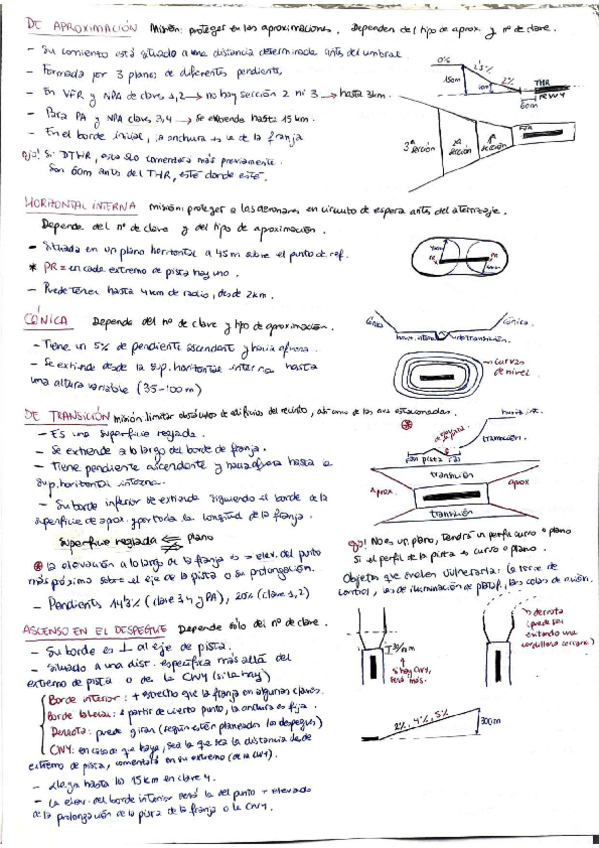 DE APROXIMACIÓN Misión: proteger en las aproximaciones. Dependen del tipo de aprox. y nº de clave.
- Su comienzo está situado a una distancia determinada antes del umbral.
- Formada por 3 planos de diferentes pendientes.
- En VFR y NPA de clave 1,2 → no hay sección 2 ni 3 → hasta 3km.
- Para PA y NPA claves 3,4 → se extiende hasta 15 km.
- En el borde inicial, la anchura es la de la franja
ojo! Si DTHR, esta SLO comenzará más previamente.
Son 60m antes del THR, esté donde esté.
0%
2%
150m
THR
RWY
60m
3ª sección
2ª sección
1ª sección
HORIZONTAL INTERNA misión: proteger a las aeronaves en circuito de espera antes del aterrizaje.
Depende del nº de clave y del tipo de aproximación.
- Situada en un plano horizontal a 45m sobre el punto de ref.
* PR = en cada extremo de pista hay uno.
- Puede tener hasta 4km de radio, desde 2km.
CÓNICA Depende del nº de clave y tipo de aproximación.
- Tiene un 5% de pendiente ascendente y hacia afuera.
- Se extiende desde la sup. horizontal interna hasta
una altura variable (35-100m)
cónica
cónica.
curvas de nivel
DE TRANSICIÓN misión limitar obstáculos de edificios del recinto, así como de las aves estacionadas.
- Es una superficie reglada.
- Se extiende a lo largo del borde de franja.
- Tiene pendiente ascendente y hacia afuera hasta la
sup. horizontal interna.
- Su borde inferior se extiende siguiendo el borde de la
superficie de aprox. y por toda la longitud de la franja.
superficie reglada plano
la elevación a lo largo de la franja es = elev. del punto
más próximo sobre el eje de la pista o su prolongación.
- Pendiente 14'3% (clave 3,4 y PA), 20% (clave 1,2)
transición.
pista
transición
aprox.
aprox
transición
ojo! No es un plano, tendrá un perfil curvo o plano
si el perfil de la pista es curvo o plano.
Objetos que suelen vulnerarla: la torre de
control, las de iluminación de plataf., las colas de avión.
ASCENSO EN EL DESPEGUE Depende solo del nº de clave.
- Su borde es ⊥ al eje de pista.
- Situado a una dist. específica más allá del
extremo de pista o de la CWY (si la hay)
Borde interior: + estrecho que la franja en algunas claves.
Borde lateral: a partir de cierto punto, la anchura es fija.
Derrota: puede girar (según estén planeados los despegues)
CWY: en caso de que haya, sea la que sea la distancia desde
extremo de pista, comenzará en su extremo (de la CWY).
- Llega hasta los 15km en clave 4.
- La elev. del borde interior será la del punto + elevado
de la prolongación de la pista de la franja o la CWY.
si hay CWY, será más.
derrota (puede ser evitando una cordillera cercana)
2%, 4%, 5%
300m